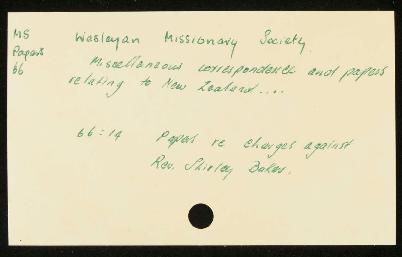 MS
Papers
66
Wesleyan Missionary Society.
Miscellaneous correspondence and papers
relating to New Zealand....
66:14 Papers re charges against
Rev. Shirley Baker.